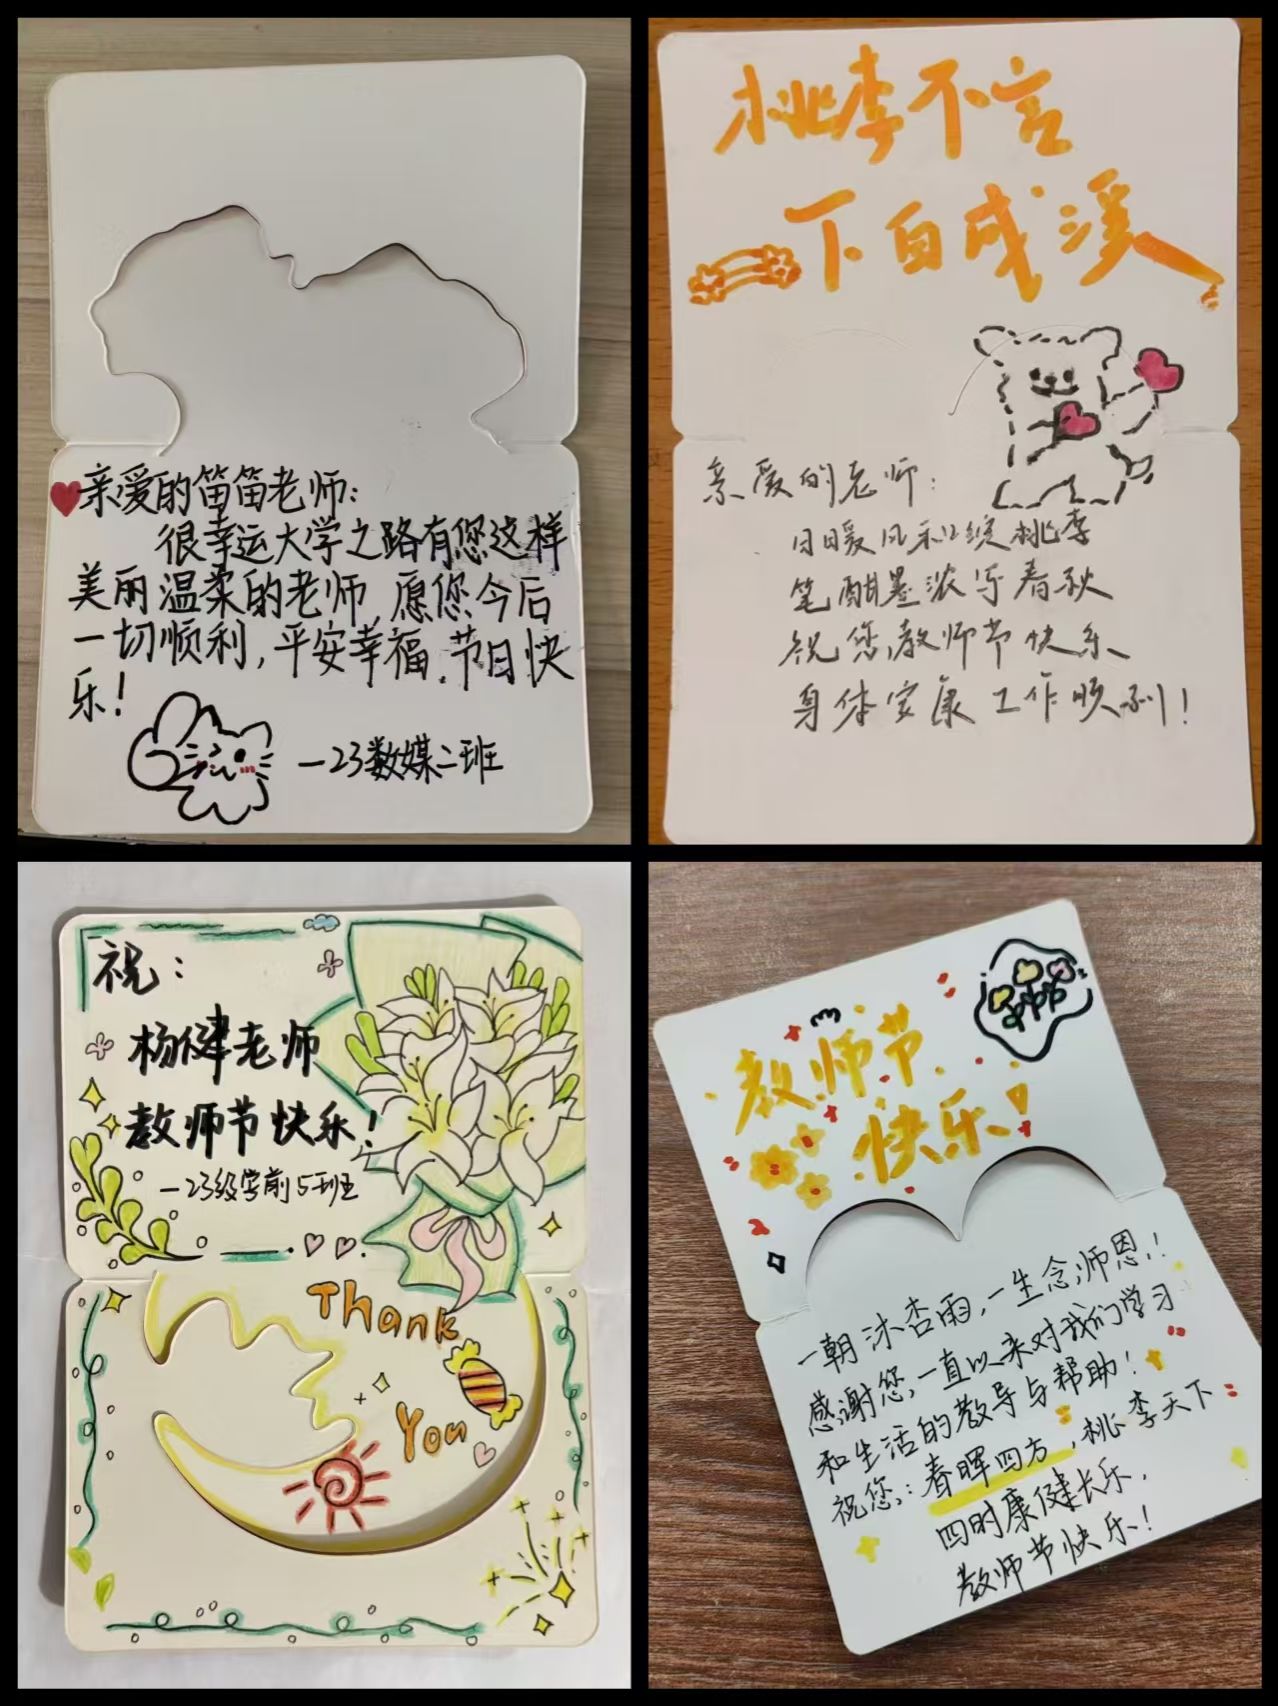 亲爱的笛笛老师:
很幸运大学之路有您这样
美丽温柔的老师,愿您今后
一切顺利,平安幸福.节日快
乐!
—23数媒二班
桃李不言
下自成溪
亲爱的老师:
日暖风和绽桃李
笔酣墨浓写春秋
祝您,教师节快乐
身体安康工作顺利!
祝:
杨健老师
教师节快乐!
—23级学前5班
Thank
You
教师节
快乐!
一朝沐杏雨,一生念师恩!
感谢您,一直以来对我们学习
和生活的教导与帮助!
祝您:春晖四方,桃李天下
四时康健长乐,
教师节快乐!